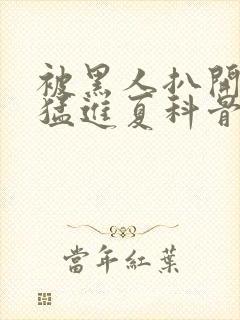 被黑人扒開
猛進夏科普
當年紅葉